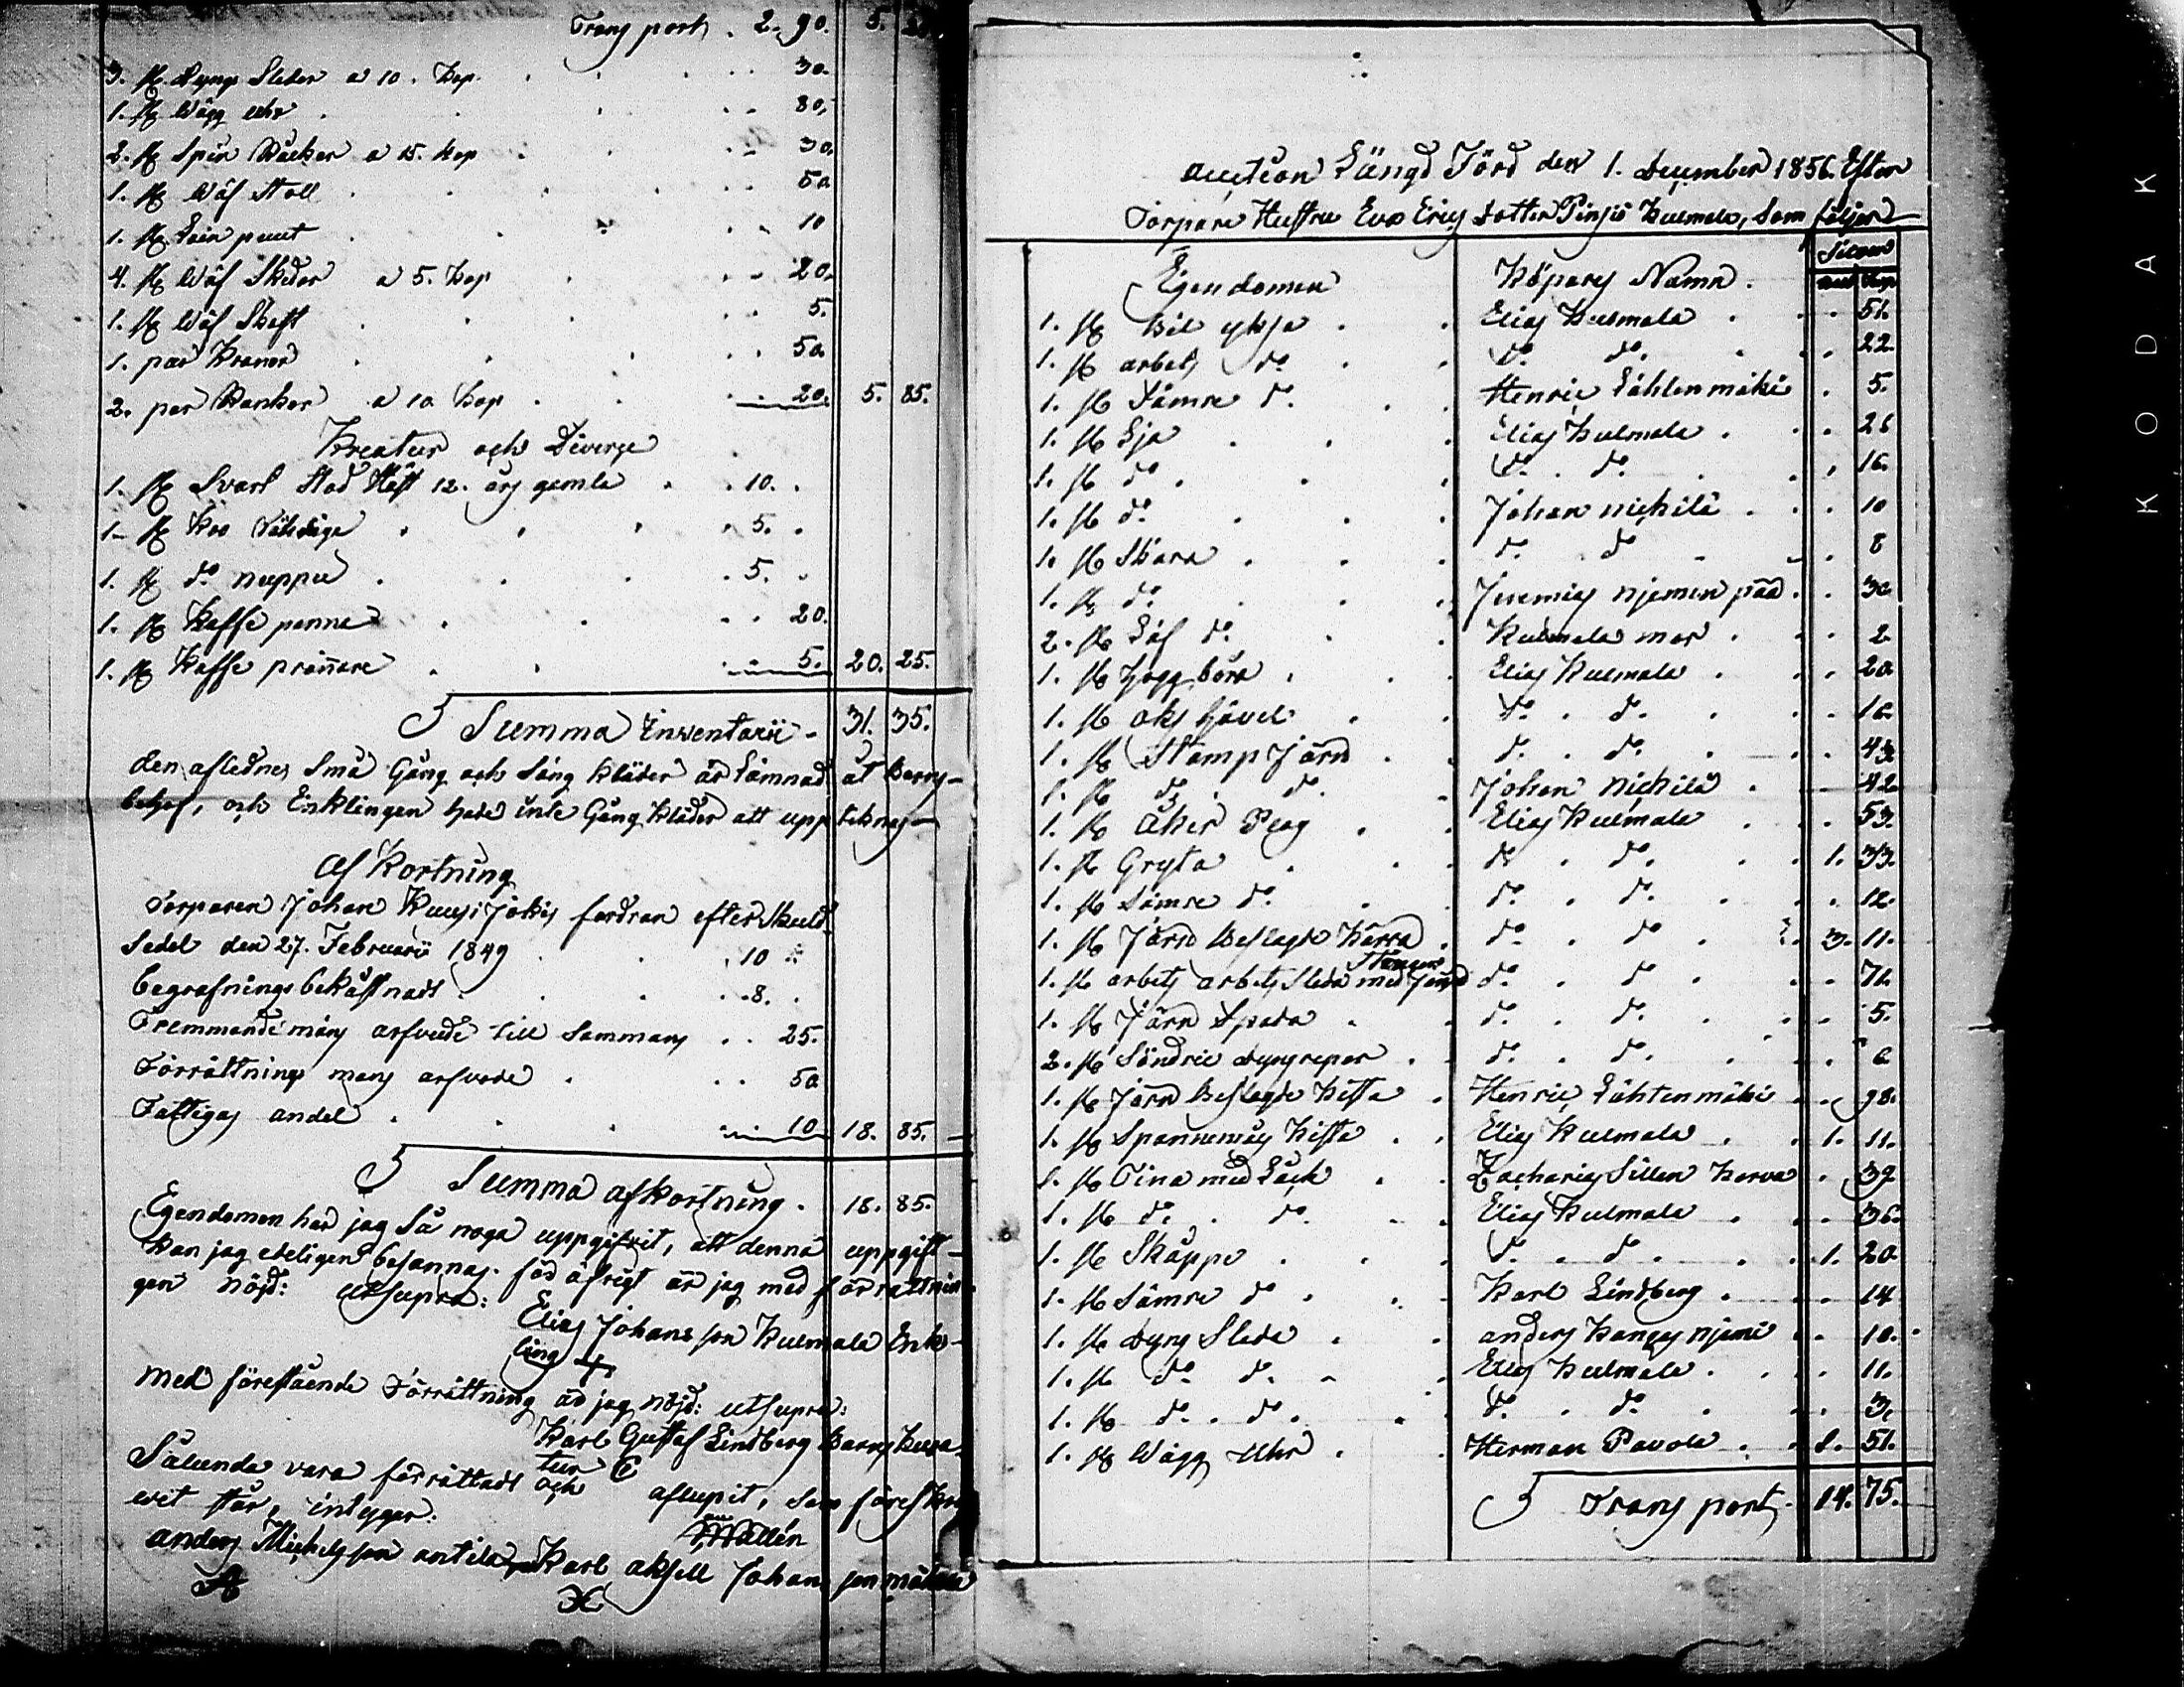 Transport . 2. 90. 5.
3. st Dyng Sledor a 10. kop. 30.
1. st Wägg Uhr 80.
2. st Spin Råckar a 15. kop 30.
1. st Wäf Stoll 50
1. st puut 10
4. st Wäf Skedor a 5. kop 20.
1. st Wäf Skeft 5.
1. par 50.
2. par a 10 kop 20. 5. 85.
Kreatur och Diverse
1. st Svart Stod Häst 12. års gamla 10.
1. st Koo 5.
1. st do nuppu 5.
1. st Kaffe panna 20.
1. st Kaffe prännare 5. 20. 25.
Summa Inventarii - 31. 35.
den aflednes Små Gång och Säng kläder är Lämnad åt Barns
behof, och Enklingen hade inte Gång kläder att uppteknas
Af Kortning
Torparen Johan Kuusi Jokis fordran efter Skuld
Sedel den 27. Februarii 1849 10
begrafnings bekåstnads 8.
Fremmande mäns arfvude till Sammans 25.
Förrättnings mans arfvode 50
Fattigas andel 10 18. 85.
Summa afkortning . 18. 85.
Egendomen har jag Så noga uppgifvit, att denna uppgift
kan jag edeligen besannas. för öfrigt är jag med förrättnin
gen nöjd: utsupra:
Elias Johans son Kulmala Enk-
ling +
med föreståände Förrättning är jag nöjd: utsupra:
Karl Gustaf Lindberg Barns Kura
tur
Sålunda vara förrättadt och aflupit, som föreskri
wit står, intygar.
Mattén
anders Michels son antila Karl aksell Johans son
Auction Längd Förd den 1. December 1856. Efter
Torpare Hustru Eva Erics dotter Kulmala, Som följer
Egendomen Köpars Namn. Silver
Rub Kop
1. st Elias Kulmala 51.
1. st arbets do. do. do. 22.
1. st Sämre do. Henric Lähtenmäki 5.
1. st Lja Elias Kulmala 26
1. st do do. do. 16.
1. st do. Johan nichilä 10
1. st Skära do. do 8
1. st do. Jeremias njemen pää 30.
2. st Löf do. Kulmala mor 2
1. st hogg böra Elias Kulmala 20
1. st oks do. do. 16.
1. st Stamp Järn do. do. 43
1. st do. do. Johan nichilä 42
1. st Åker Plog Elias Kulmala 53.
1. st Gryta do. do. 1. 33.
1. st Sämre do. do. do. 12.
1. st Järn Beslagde Kärra do. do 3. 11.
1. st arbets arbets Släda med Järn Stänger do. do 71.
1. st Järn Spada do. do. 5.
2. st Söndrie do. do. 6
1. st Järn Beslagde Kista Henric Lähtenmäki 98.
1. st Spannemåls Kista Elias Kulmala 1. 11.
1. st Tina med Låck Zacharias Sillan Korva 39
1. st do. do. Elias Kulmala 36.
1. st Skäppe do. do. 1. 20.
1. st Sämre do Karl Lindberg 14
1. st Dyng Slede anders Kangas njemi 10.
1. st do. do. Elias Kulmala 11.
1. st do. do. do. do. 3.
1. st Wägg Uhr Herman Pavola 1. 51.
Transport 14. 75.
KODAK